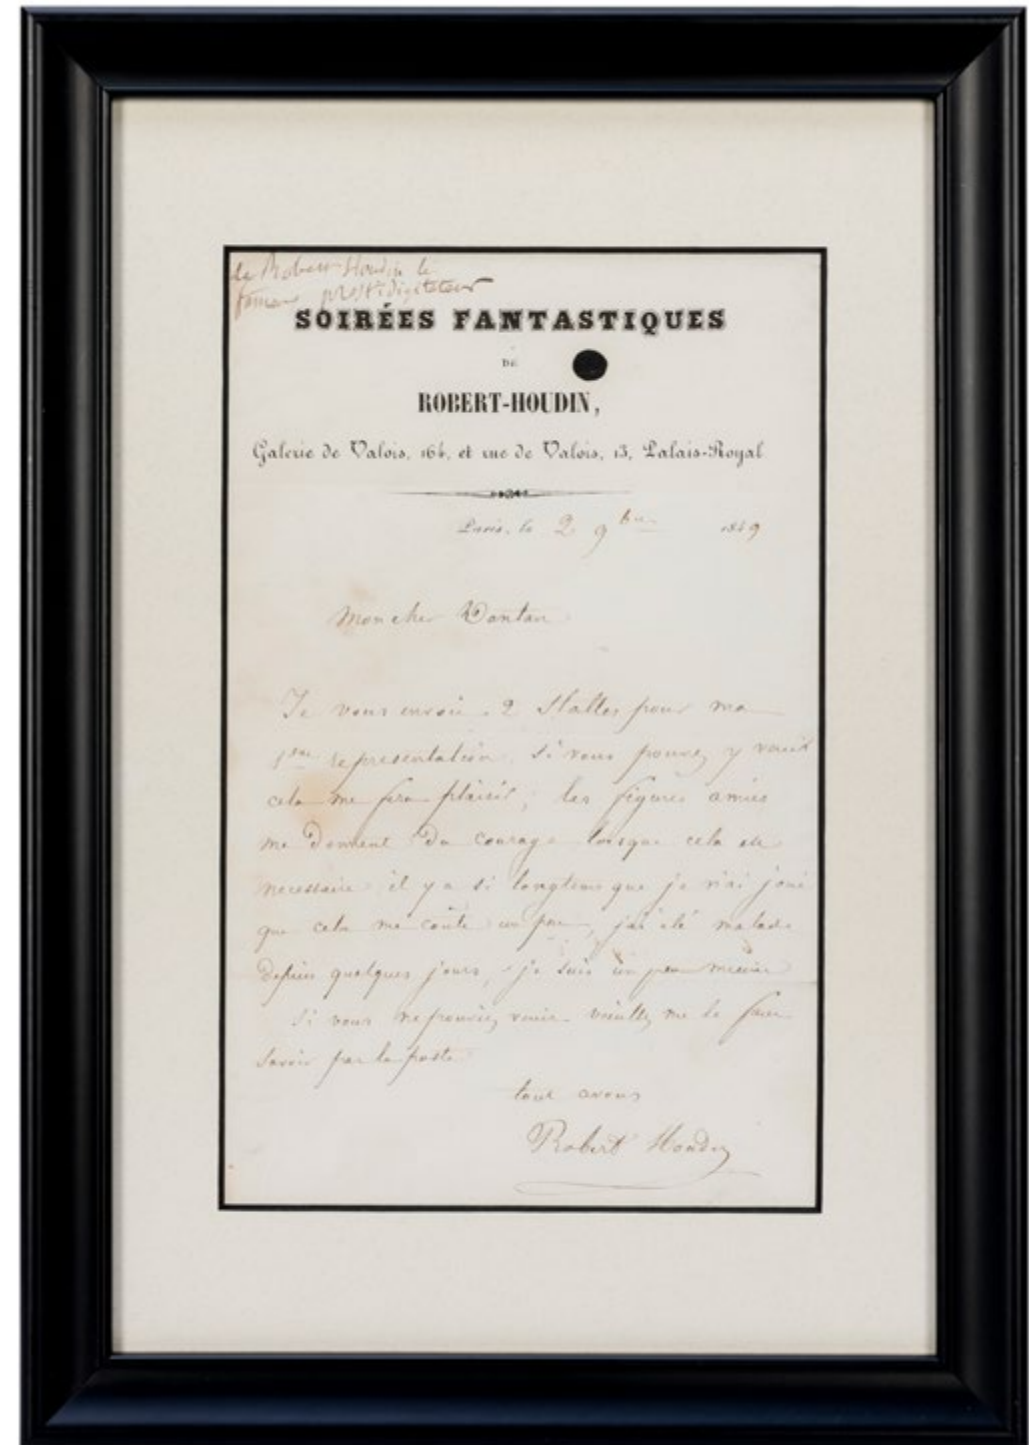 de Robert-Houdin le
fameux prestidigitateur
SOIRÉES FANTASTIQUES
DE
ROBERT-HOUDIN,
Galerie de Valois, 164, et rue de Valois, 13, Palais-Royal
Paris, le 2 9bre 1849
Mon cher Dantan
Je vous envoie 2 Stalles pour ma
1ere representation. Si vous pouvez y venir
cela me fera plaisir, les figures amies
me donnent du courage lorsque cela est
necessaire il y a si longtems que je n'ai joué
que cela me coute un peu, j'ai été malade
depuis quelques jours, je suis un peu mieux
Si vous ne pouviez venir veuillez me le faire
savoir par la poste
tout avous
Robert Houdin